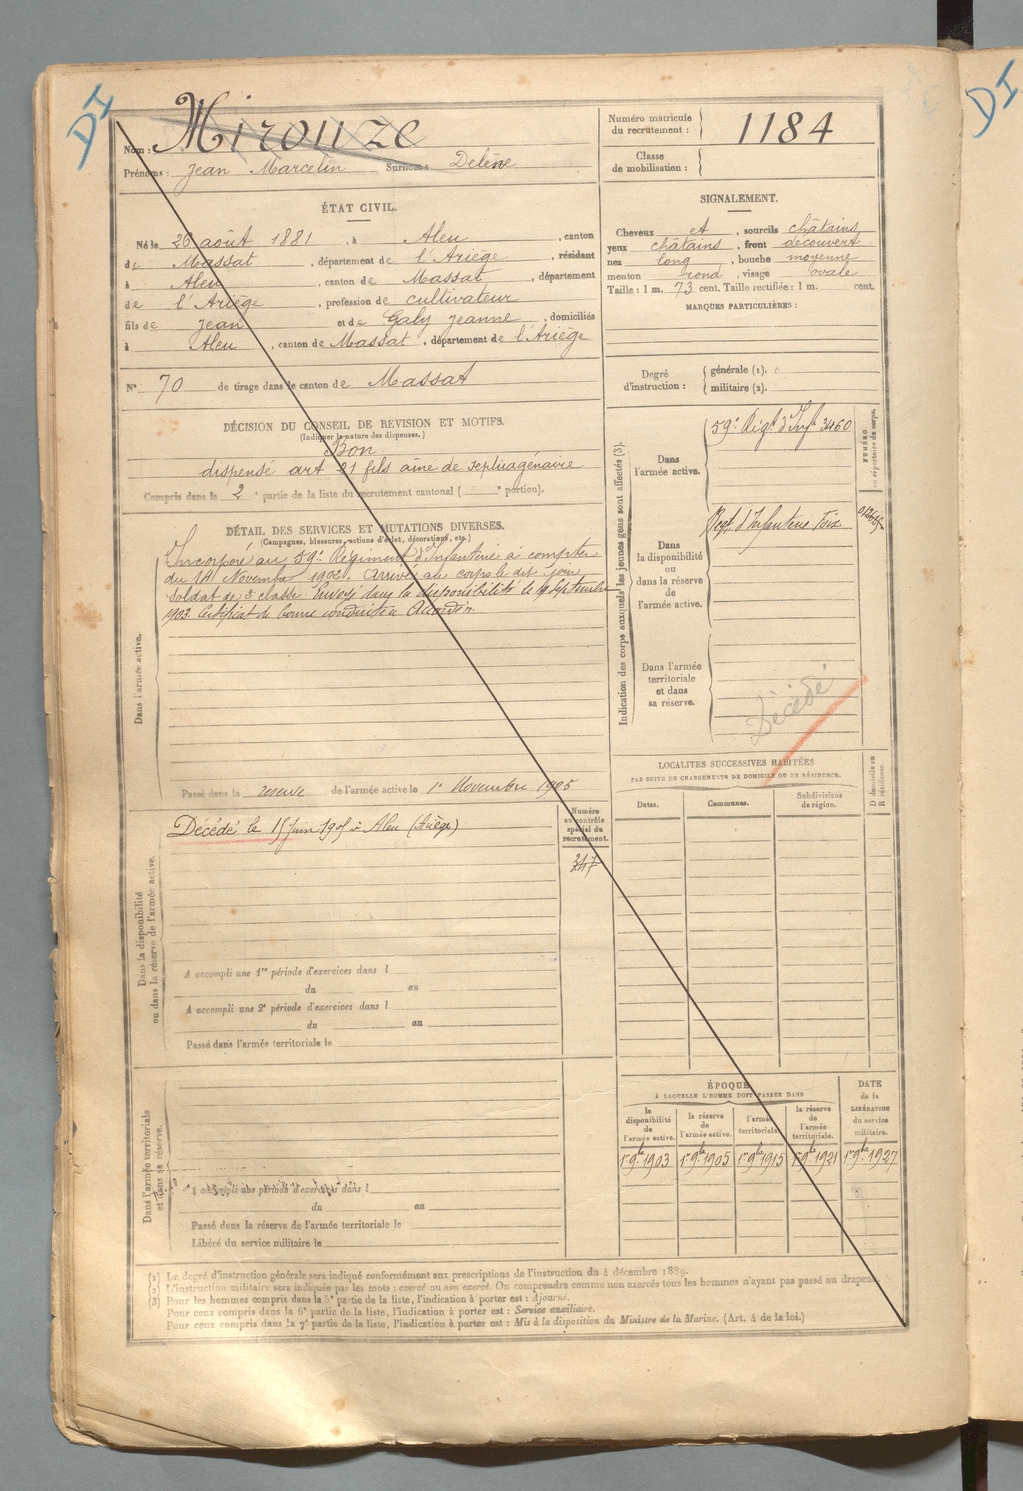 DI
DI
Nom : Mirouze
Prénoms : Jean Marcelin Surnoms : Delène
Numéro matricule du recrutement : 1184
Classe de mobilisation :
ÉTAT CIVIL.
Né le 26 août 1881, à Aleu, canton
de Massat, département de l'Ariège, résidant
à Aleu, canton de Massat, département
de l'Ariège, profession de cultivateur
fils de Jean et de Galy Jeanne, domiciliés
à Aleu, canton de Massat, département de l'Ariège
N° 70 de tirage dans le canton de Massat
SIGNALEMENT.
Cheveux et, sourcils châtains
yeux châtains, front découvert
nez long, bouche moyenne
menton rond, visage ovale
Taille : 1 m. 73 cent. Taille rectifiée : 1 m. cent.
MARQUES PARTICULIÈRES :
Degré d'instruction : générale (1). "
militaire (2).
DÉCISION DU CONSEIL DE REVISION ET MOTIFS.
(Indiquer la nature des dispenses.)
Bon
dispensé art 21 fils aîné de septuagénaire
Compris dans la 2e partie de la liste du recrutement cantonal ( e portion).
DÉTAIL DES SERVICES ET MUTATIONS DIVERSES.
(Campagnes, blessures, actions d'éclat, décorations, etc.)
Dans l'armée active.
Incorporé au 59e Régiment d'Infanterie à compter
du 14 Novembre 1902. Arrivé au corps le dit jour
Soldat de 2e classe. Envoyé dans la disponibilité le 19 Septembre
1903. Certificat de bonne conduite « Accordé ».
Passé dans la réserve de l'armée active le 1er Novembre 1905
Indication des corps auxquels les jeunes gens sont affectés (3).
NUMÉRO au répertoire du corps.
Dans l'armée active.
59e Régt d'Infie 3460
Dans la disponibilité ou dans la réserve de l'armée active.
Regt d'Infanterie Foix
Dans l'armée territoriale et dans sa réserve.
Décédé
LOCALITÉS SUCCESSIVES HABITÉES
PAR SUITE DE CHANGEMENTS DE DOMICILE OU DE RÉSIDENCE.
Dates.
Communes.
Subdivisions de région.
D domicile ou R résidence.
Dans la disponibilité ou dans la réserve de l'armée active.
Décédé le 15 Juin 1905 à Aleu (Ariège)
Numéro au contrôle spécial du recrutement.
347
A accompli une 1re période d'exercices dans l
du au
A accompli une 2e période d'exercices dans l
du au
Passé dans l'armée territoriale le
Dans l'armée territoriale et dans sa réserve.
A accompli une période d'exercices dans l
du au
Passé dans la réserve de l'armée territoriale le
Libéré du service militaire le
ÉPOQUE
À LAQUELLE L'HOMME DOIT PASSER DANS
la disponibilité de l'armée active.
la réserve de l'armée active.
l'armée territoriale.
la réserve de l'armée territoriale.
DATE de la LIBÉRATION du service militaire.
1er 9bre 1903
1er 9bre 1905
1er 9bre 1915
1er 9bre 1921
1er 9bre 1927
(1) Le degré d'instruction générale sera indiqué conformément aux prescriptions de l'instruction du 4 décembre 1889.
(2) L'instruction militaire sera indiquée par les mots : exercé ou non exercé. On comprendra comme non exercés tous les hommes n'ayant pas passé au drapeau.
(3) Pour les hommes compris dans la 5e partie de la liste, l'indication à porter est : Ajourné.
Pour ceux compris dans la 6e partie de la liste, l'indication à porter est : Service auxiliaire.
Pour ceux compris dans la 7e partie de la liste, l'indication à porter est : Mis à la disposition du Ministre de la Marine. (Art. 4 de la loi.)